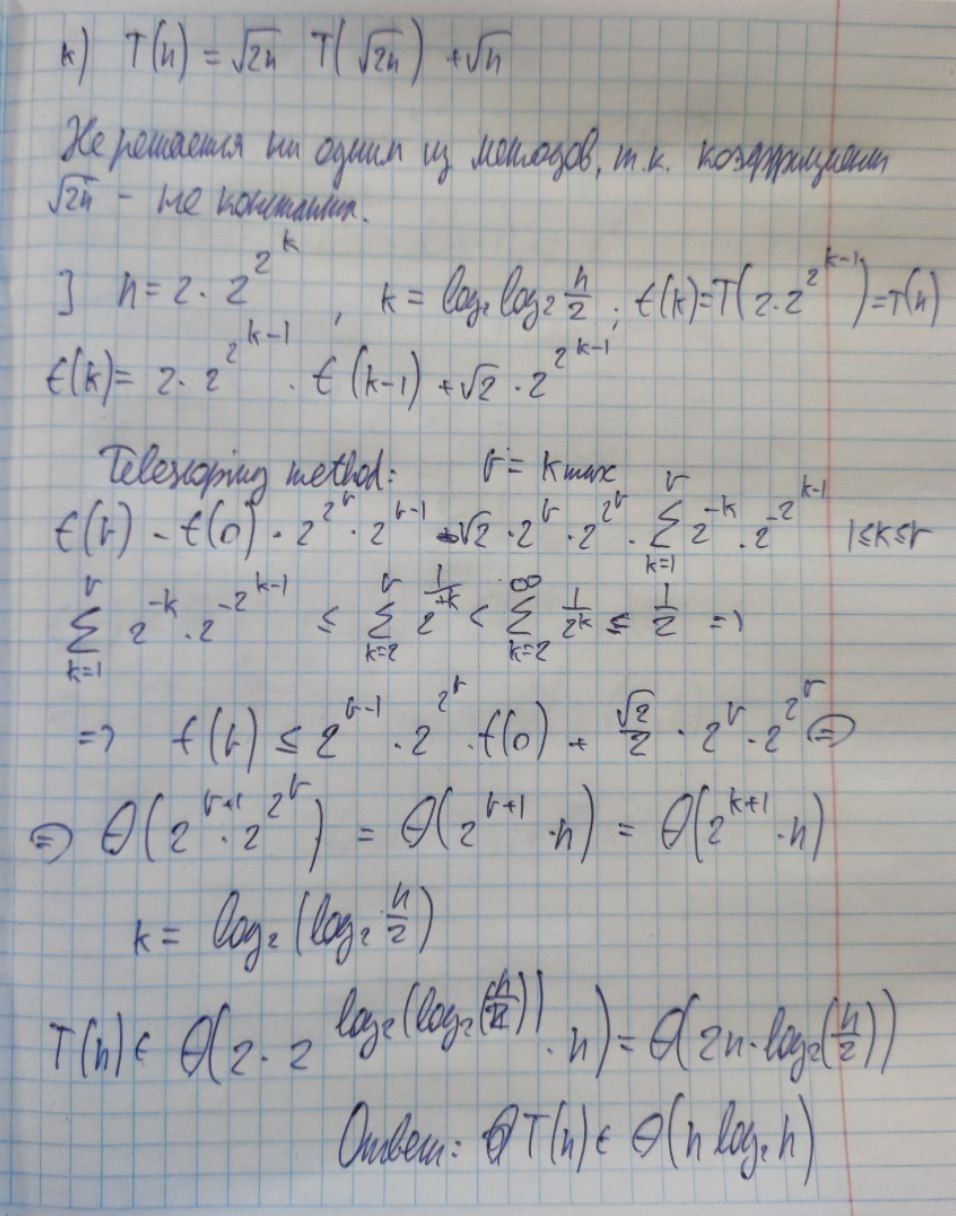 к) T(n) = √2n T(√2n) + √n
Не решается ни одним из методов, т.к. коэффициент
√2n - не константа.
] n = 2 · 2^{2^k}, k = log₂ log₂ n/2 ; t(k) = T(2 · 2^{2^{k-1}}) = T(n)
t(k) = 2 · 2^{2^{k-1}} · t(k-1) + √2 · 2^{2^{k-1}}
Telescoping method: r = k max
t(r) - t(0) · 2^{2^r} · 2^{r-1} √2 · 2^r · 2^{2^r} · ∑_{k=1}^{r} 2^{-k} · 2^{-2^{k-1}} 1≤k≤r
∑_{k=1}^{r} 2^{-k} · 2^{-2^{k-1}} ≤ ∑_{k=2}^{r} 1/2^{+k} < ∑_{k=2}^{∞} 1/2^k ≤ 1/2 =>
=> t(r) ≤ 2^{r-1} · 2^{2^r} · t(0) + √2/2 · 2^r · 2^{2^r} =>
=> Θ(2^{r+1} · 2^{2^r}) = Θ(2^{r+1} · n) = Θ(2^{k+1} · n)
k = log₂(log₂ n/2)
T(n) ∈ Θ(2 · 2^{log₂(log₂(n/2))} · n) = Θ(2n · log₂(n/2))
Ответ: T(n) ∈ Θ(n log₂ n)